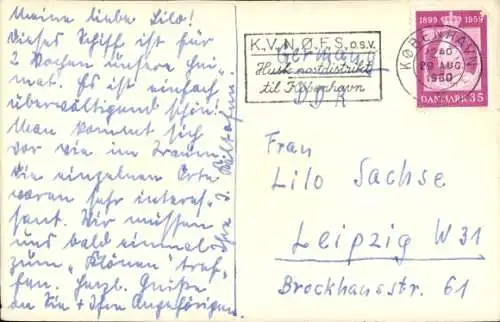 Meine liebe Lilo!
Dieses Schiff ist für
2 Wochen unsere Hei-
mat. Es ist einfach
überwältigend schön!
Man kommt sich
vor wie im Traum.
Die einzelnen Orte
waren sehr interes-
sant. Wir müssen
uns bald einmal
zum „Klönen" tref-
fen. Herzl. Grüße
an Sie + Ihre Angehörigen.
Ihre J.
K.V.N.Ø.F.S. o.s.v.
Husk postdistrikt
til København
Germany
DDR
KØBENHAVN
29 AUG.
1960
1899 1959
DANMARK 35
Frau
Lilo Sachse
Leipzig W 31
Brockhausstr. 61